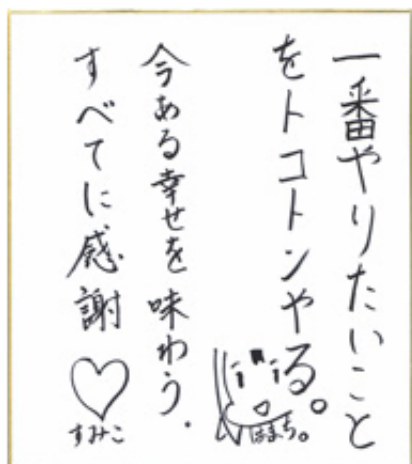 一番やりたいこと
をトコトンやる。
はまち。
今ある幸せを味わう.
すべてに感謝
すみこ